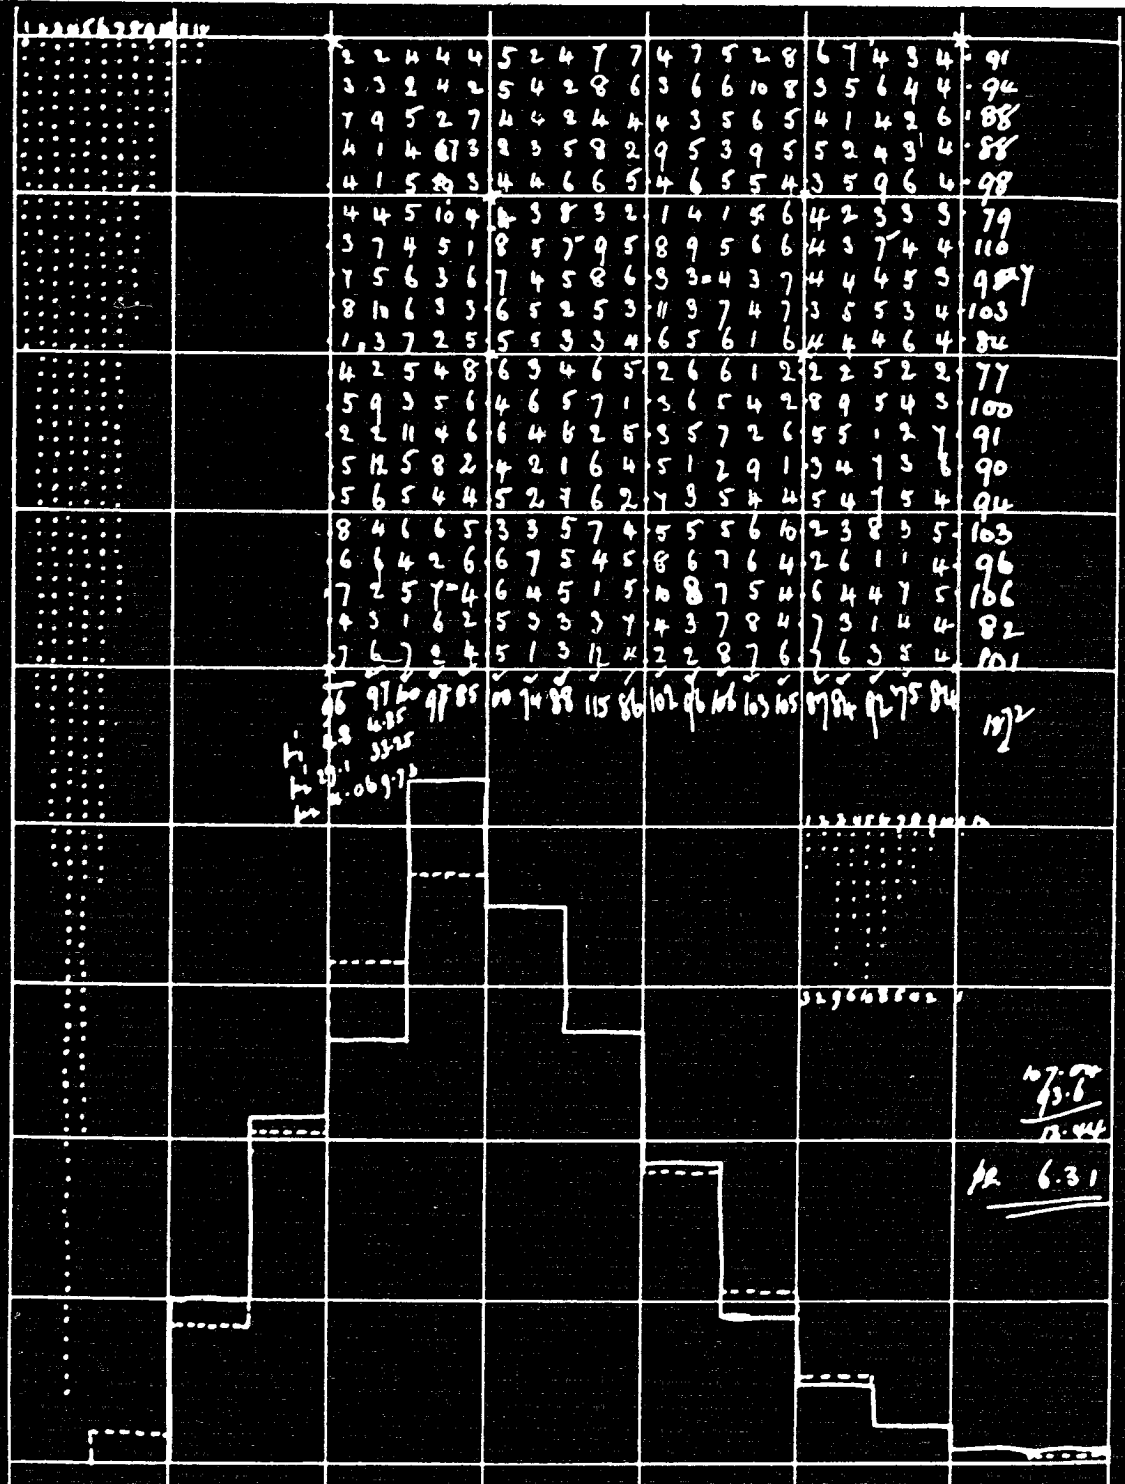 1 2 3 4 5 6 7 8 9 10 11 12
2 2 4 4 4 5 2 4 7 7 4 7 5 2 8 6 7 4 3 4 91
3 3 2 4 2 5 4 2 8 6 3 6 6 10 8 3 5 6 4 4 94
7 9 5 2 7 4 4 2 4 4 4 3 5 6 5 4 1 4 2 6 88
4 1 4 7 3 2 3 5 8 2 9 5 3 9 5 5 2 4 3 4 88
4 1 5 9 3 4 4 6 6 5 4 6 5 5 4 3 5 9 6 4 98
4 4 5 10 4 4 3 8 3 2 1 4 1 5 6 4 2 3 3 3 79
3 7 4 5 1 8 5 7 9 5 8 9 5 6 6 4 3 7 4 4 110
7 5 6 3 6 7 4 5 8 6 3 3 4 3 7 4 4 4 5 3
8 10 6 3 3 6 5 2 5 3 11 3 7 4 7 3 5 5 3 4 103
1 3 7 2 5 5 5 3 3 4 6 5 6 1 6 4 4 4 6 4 84
4 2 5 4 8 6 3 4 6 5 2 6 6 1 2 2 2 5 2 2 77
5 9 3 5 6 4 6 5 7 1 3 6 5 4 2 8 9 5 4 3 100
2 2 11 4 6 6 4 6 2 5 3 5 7 2 6 5 5 1 2 7 91
5 12 5 8 2 4 2 1 6 4 5 1 2 9 1 3 4 7 3 6 90
5 6 5 4 4 5 2 7 6 2 7 3 5 4 4 5 4 7 5 4 94
8 4 6 6 5 3 3 5 7 4 5 5 5 6 10 2 3 8 3 5 103
6 6 4 2 6 6 7 5 4 5 8 6 7 6 4 2 6 1 1 4 96
7 2 5 7 4 6 4 5 1 5 10 8 7 5 4 6 4 4 7 5 106
4 3 1 6 2 5 3 3 3 7 4 3 7 8 4 7 3 1 4 4 82
7 6 7 2 4 5 1 3 12 4 2 2 8 7 6 7 6 3 5 4 101
96 97 100 97 85 74 88 115 86 102 96 106 103 105 87 84 92 75 84
1872
4.8 4.85
29.1 33.25
1 2 3 4 5 6 7 8 9 10 11 12
3 2 9 6 10 8 5 0 2 1
93.6
13.44
6.31